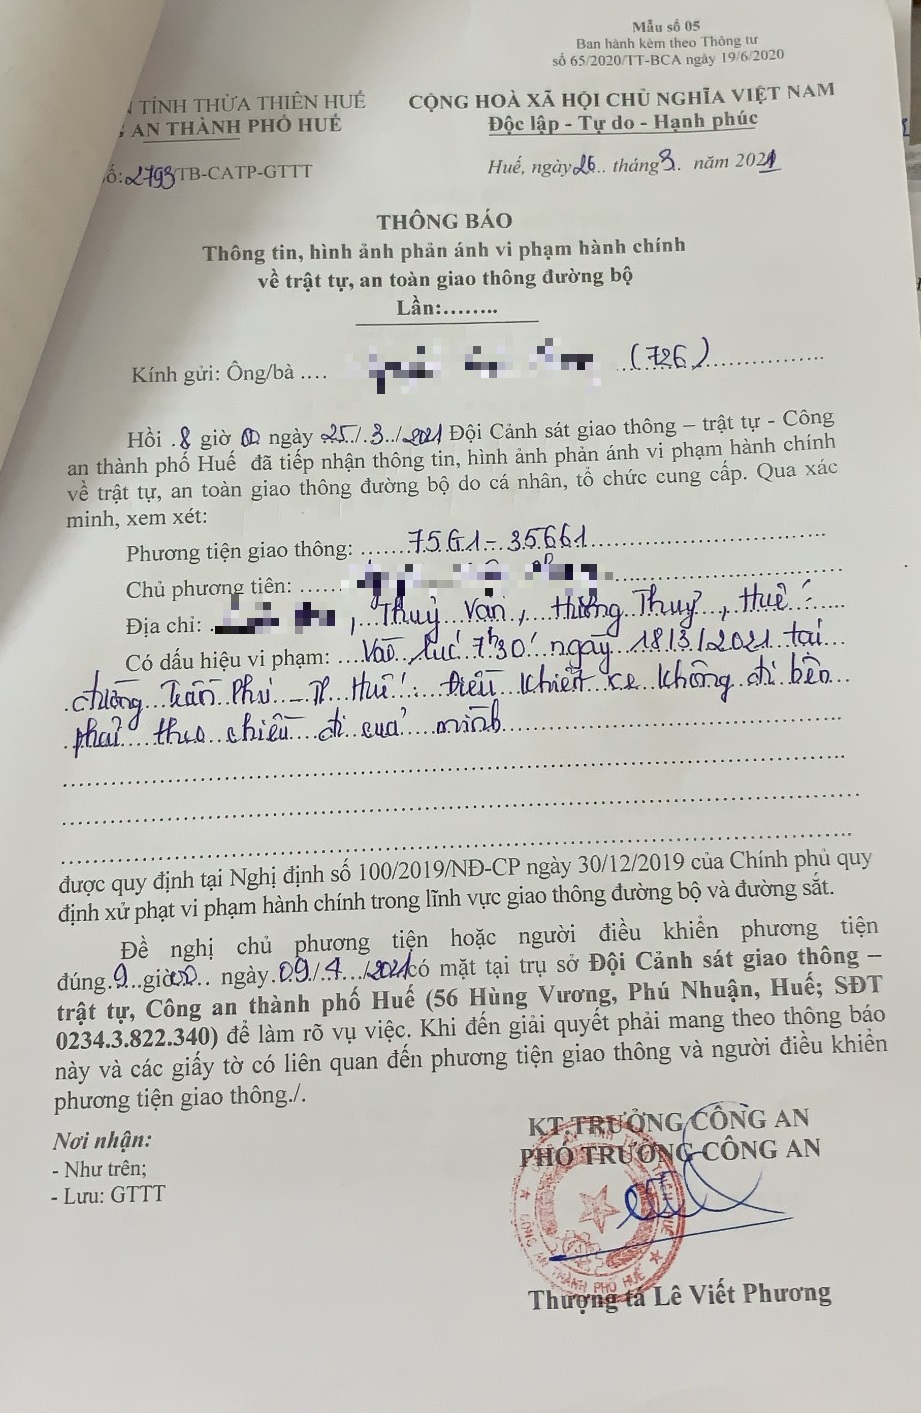 Mẫu số 05
Ban hành kèm theo Thông tư
số 65/2020/TT-BCA ngày 19/6/2020
TỈNH THỪA THIÊN HUẾ
AN THÀNH PHỐ HUẾ
CỘNG HOÀ XÃ HỘI CHỦ NGHĨA VIỆT NAM
Độc lập - Tự do - Hạnh phúc
ố: 2793/TB-CATP-GTTT
Huế, ngày 26.. tháng 3. năm 2021
THÔNG BÁO
Thông tin, hình ảnh phản ánh vi phạm hành chính
về trật tự, an toàn giao thông đường bộ
Lần:........
Kính gửi: Ông/bà .... (726)
Hồi .8 giờ 00 ngày 25../.3../2021 Đội Cảnh sát giao thông – trật tự - Công
an thành phố Huế đã tiếp nhận thông tin, hình ảnh phản ánh vi phạm hành chính
về trật tự, an toàn giao thông đường bộ do cá nhân, tổ chức cung cấp. Qua xác
minh, xem xét:
Phương tiện giao thông: ......75G1-35661
Chủ phương tiên: ......
Địa chỉ: , Thuỷ Vân, Hương Thuỷ, Huế
Có dấu hiệu vi phạm: ....Vào lúc 7h30' ngày 18/3/2021 tại
đường Trần Phú - TP Huế. Điều khiển xe không đi bên
phải theo chiều đi của mình
được quy định tại Nghị định số 100/2019/NĐ-CP ngày 30/12/2019 của Chính phủ quy
định xử phạt vi phạm hành chính trong lĩnh vực giao thông đường bộ và đường sắt.
Đề nghị chủ phương tiện hoặc người điều khiển phương tiện
đúng.9..giờ00.. ngày.09./.4.../2021có mặt tại trụ sở Đội Cảnh sát giao thông –
trật tự, Công an thành phố Huế (56 Hùng Vương, Phú Nhuận, Huế; SĐT
0234.3.822.340) để làm rõ vụ việc. Khi đến giải quyết phải mang theo thông báo
này và các giấy tờ có liên quan đến phương tiện giao thông và người điều khiển
phương tiện giao thông./.
Nơi nhận:
- Như trên;
- Lưu: GTTT
KT.TRƯỞNG CÔNG AN
PHÓ TRƯỞNG CÔNG AN
CÔNG AN THÀNH PHỐ HUẾ
Thượng tá Lê Viết Phương